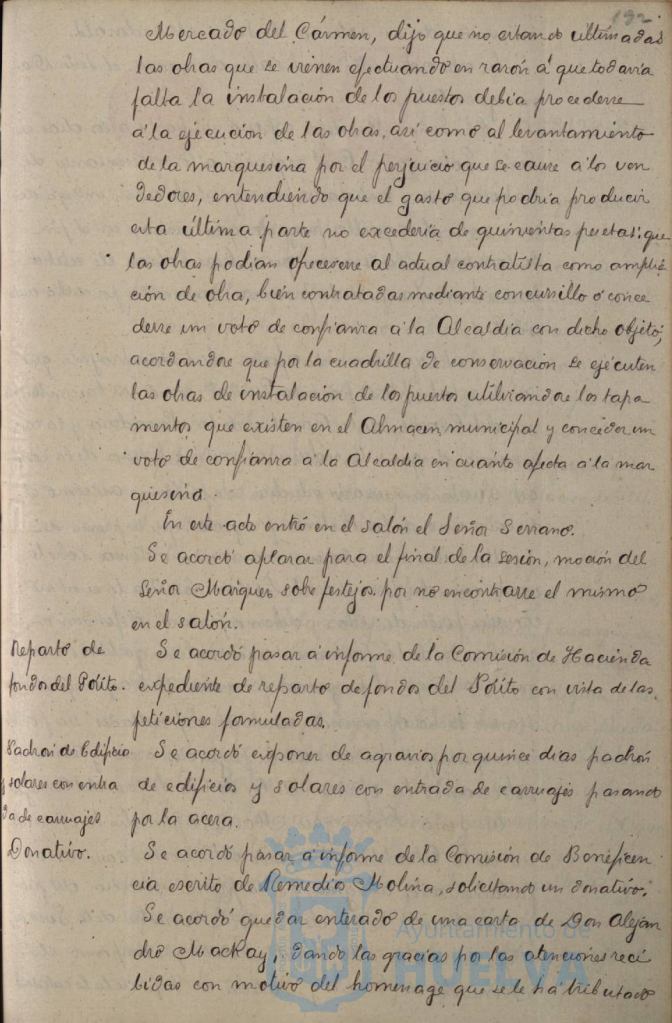 192.
Mercado del Cármen, dijo que no estando ultimadas
las obras que se vienen efectuando en razón á que todavía
falta la instalación de los puestos debía procederse
á la ejecución de las obras, así como al levantamiento
de la marquesina por el perjuicio que se cause á los ven
dedores, entendiendo que el gasto que podría producir
esta última parte no excedería de quinientas pesetas: que
las obras podían ofrecerse al actual contratista como amplia
ción de obra, bien contratadas mediante concursillo ó conce
derse un voto de confianza á la Alcaldía con dicho objeto;
acordandose que por la cuadrilla de conservación se ejecuten
las obras de instalación de los puestos utilizandose los tapa
mentos que existen en el Almacen municipal y conceder un
voto de confianza á la Alcaldía en cuanto afecta á la mar
quesina.
En este acto entró en el salón el Señor Serrano.
Se acordó aplazar para el final de la sesión, moción del
Señor Marquez sobre festejos por no encontrarse el mismo
en el salón.
Reparto de
fondos del Pósito.
Se acordó pasar á informe de la Comisión de Hacienda
expediente de reparto de fondos del Pósito con vista de las
peticiones formuladas.
Padrón de Edificio
y solares con entra
da de carruajes
Se acordó exponer de agravios por quince dias padrón
de edificios y solares con entrada de carruajes pasando
por la acera.
Donativo.
Se acordó pasar á informe de la Comisión de Beneficen
cia escrito de Remedio Molina, solicitando un donativo.
Se acordó quedar enterado de una carta de Don Alejan
dro Mackay, dando las gracias por las atenciones reci
bidas con motivo del homenage que se le há tributado
Ayuntamiento de
HUELVA